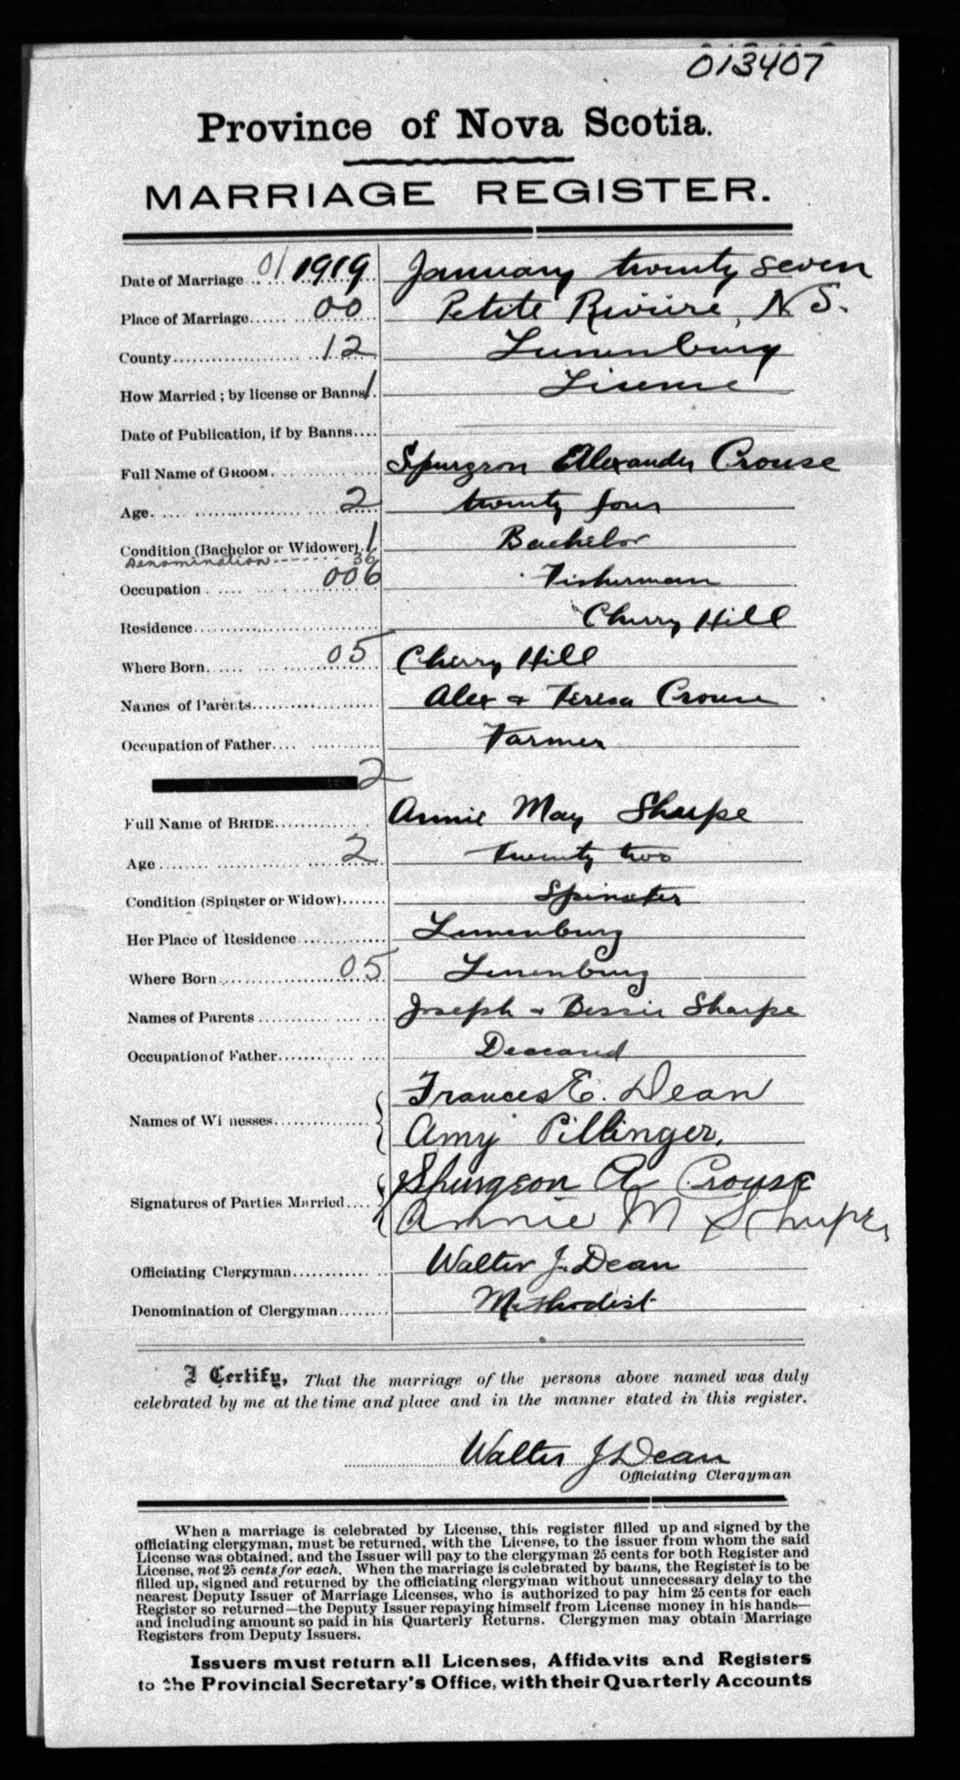 013407
Province of Nova Scotia.
MARRIAGE REGISTER.
Date of Marriage .. 01 1919 January twenty seven
Place of Marriage...... 00 Petite Riviere, N S.
County.................... 12 Lunenburg
How Married ; by license or Banns 1. License
Date of Publication, if by Banns....
Full Name of GROOM. Spurgeon Alexander Crouse
Age. 2 twenty four
Condition (Bachelor or Widower). 1 Bachelor
Denomination 36
Occupation 006 Fisherman
Residence Cherry Hill
Where Born. 05 Cherry Hill
Names of Parents Alex + Teresa Crouse
Occupation of Father Farmer
2
Full Name of BRIDE Annie May Sharpe
Age 2 twenty two
Condition (Spinster or Widow) Spinster
Her Place of Residence Lunenburg
Where Born 05 Lunenburg
Names of Parents Joseph + Bessie Sharpe
Occupation of Father Deceased
Frances E. Dean
Names of Wi nesses
Amy Pillinger,
Spurgeon A Crouse
Signatures of Parties Married
Annie M Sharpe,
Officiating Clergyman Walter J. Dean
Denomination of Clergyman Methodist
I Certify, That the marriage of the persons above named was duly
celebrated by me at the time and place and in the manner stated in this register.
Walter J Dean
Officiating Clergyman
When a marriage is celebrated by License, this register filled up and signed by the
officiating clergyman, must be returned, with the License, to the issuer from whom the said
License was obtained, and the Issuer will pay to the clergyman 25 cents for both Register and
License, not 25 cents for each. When the marriage is celebrated by banns, the Register is to be
filled up, signed and returned by the officiating clergyman without unnecessary delay to the
nearest Deputy Issuer of Marriage Licenses, who is authorized to pay him 25 cents for each
Register so returned—the Deputy Issuer repaying himself from License money in his hands—
and including amount so paid in his Quarterly Returns. Clergymen may obtain Marriage
Registers from Deputy Issuers.
Issuers must return all Licenses, Affidavits and Registers
to the Provincial Secretary's Office, with their Quarterly Accounts